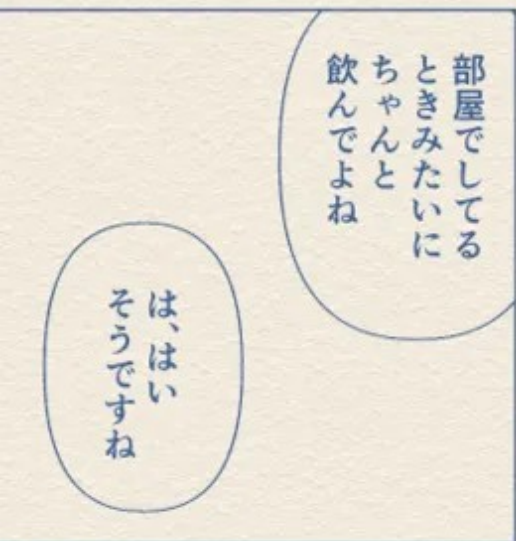 部屋でしてる
ときみたいに
ちゃんと
飲んでよね
は、はい
そうですね